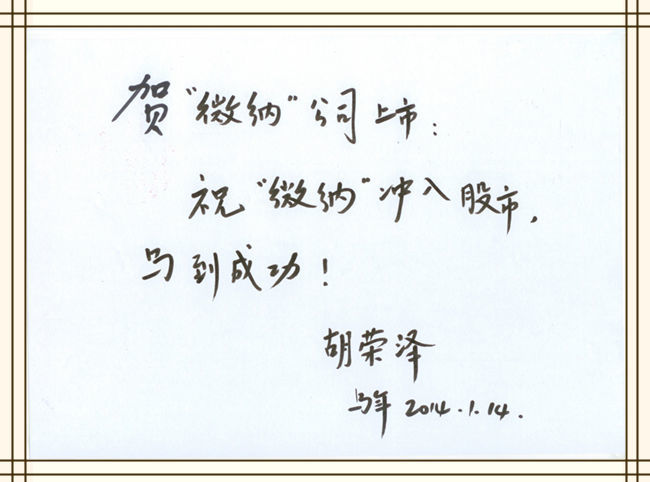 贺“微纳”公司上市：
祝“微纳”冲入股市，
马到成功！
胡荣泽
马年 2014.1.14.